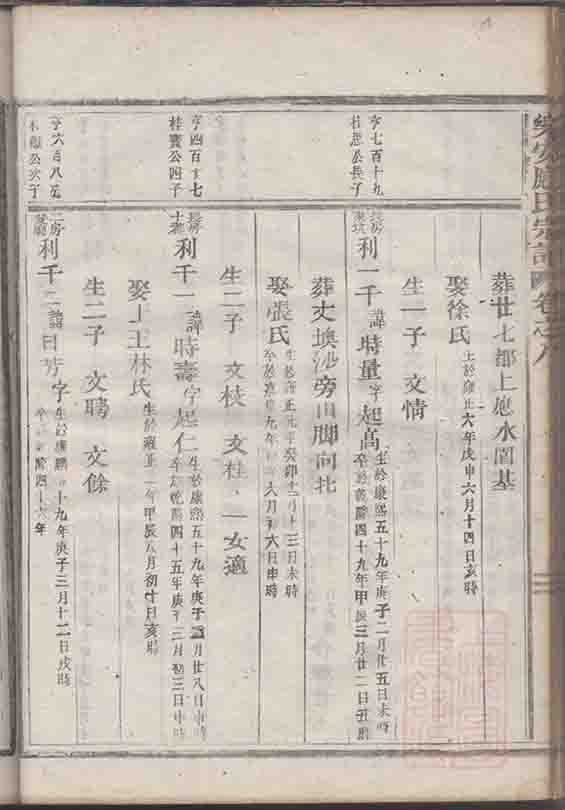 葬廿七都上
水閣基
娶徐氏
生於雍正六年戊申六月十四日亥時
生一子 文情
亨七百十九
公長子
長房
利一千 諱時量 字起高
生於康熙五十九年庚子二月廿五日未時
卒於乾隆四十九年甲辰三月廿二日丑時
葬丈墺沙旁山脚向北
娶張氏
生於雍正元年癸卯十二月十三日未時
九年 六月初六日申時
生二子 文枝 文桂 一女適
亨四百十七
桂實公四子
長房
利千一 諱時壽 字起仁
生於康熙五十九年庚子 月廿八日申時
卒於乾隆四十五年庚子二月初三日申時
娶上王林氏
生於雍正二年甲辰六月初十日亥時
生二子 文聘 文餘
亨六百八
公次子
二房
利千二 諱日芳 字
生於康熙五十九年庚子三月十二日戌時
卒 隆四十六年